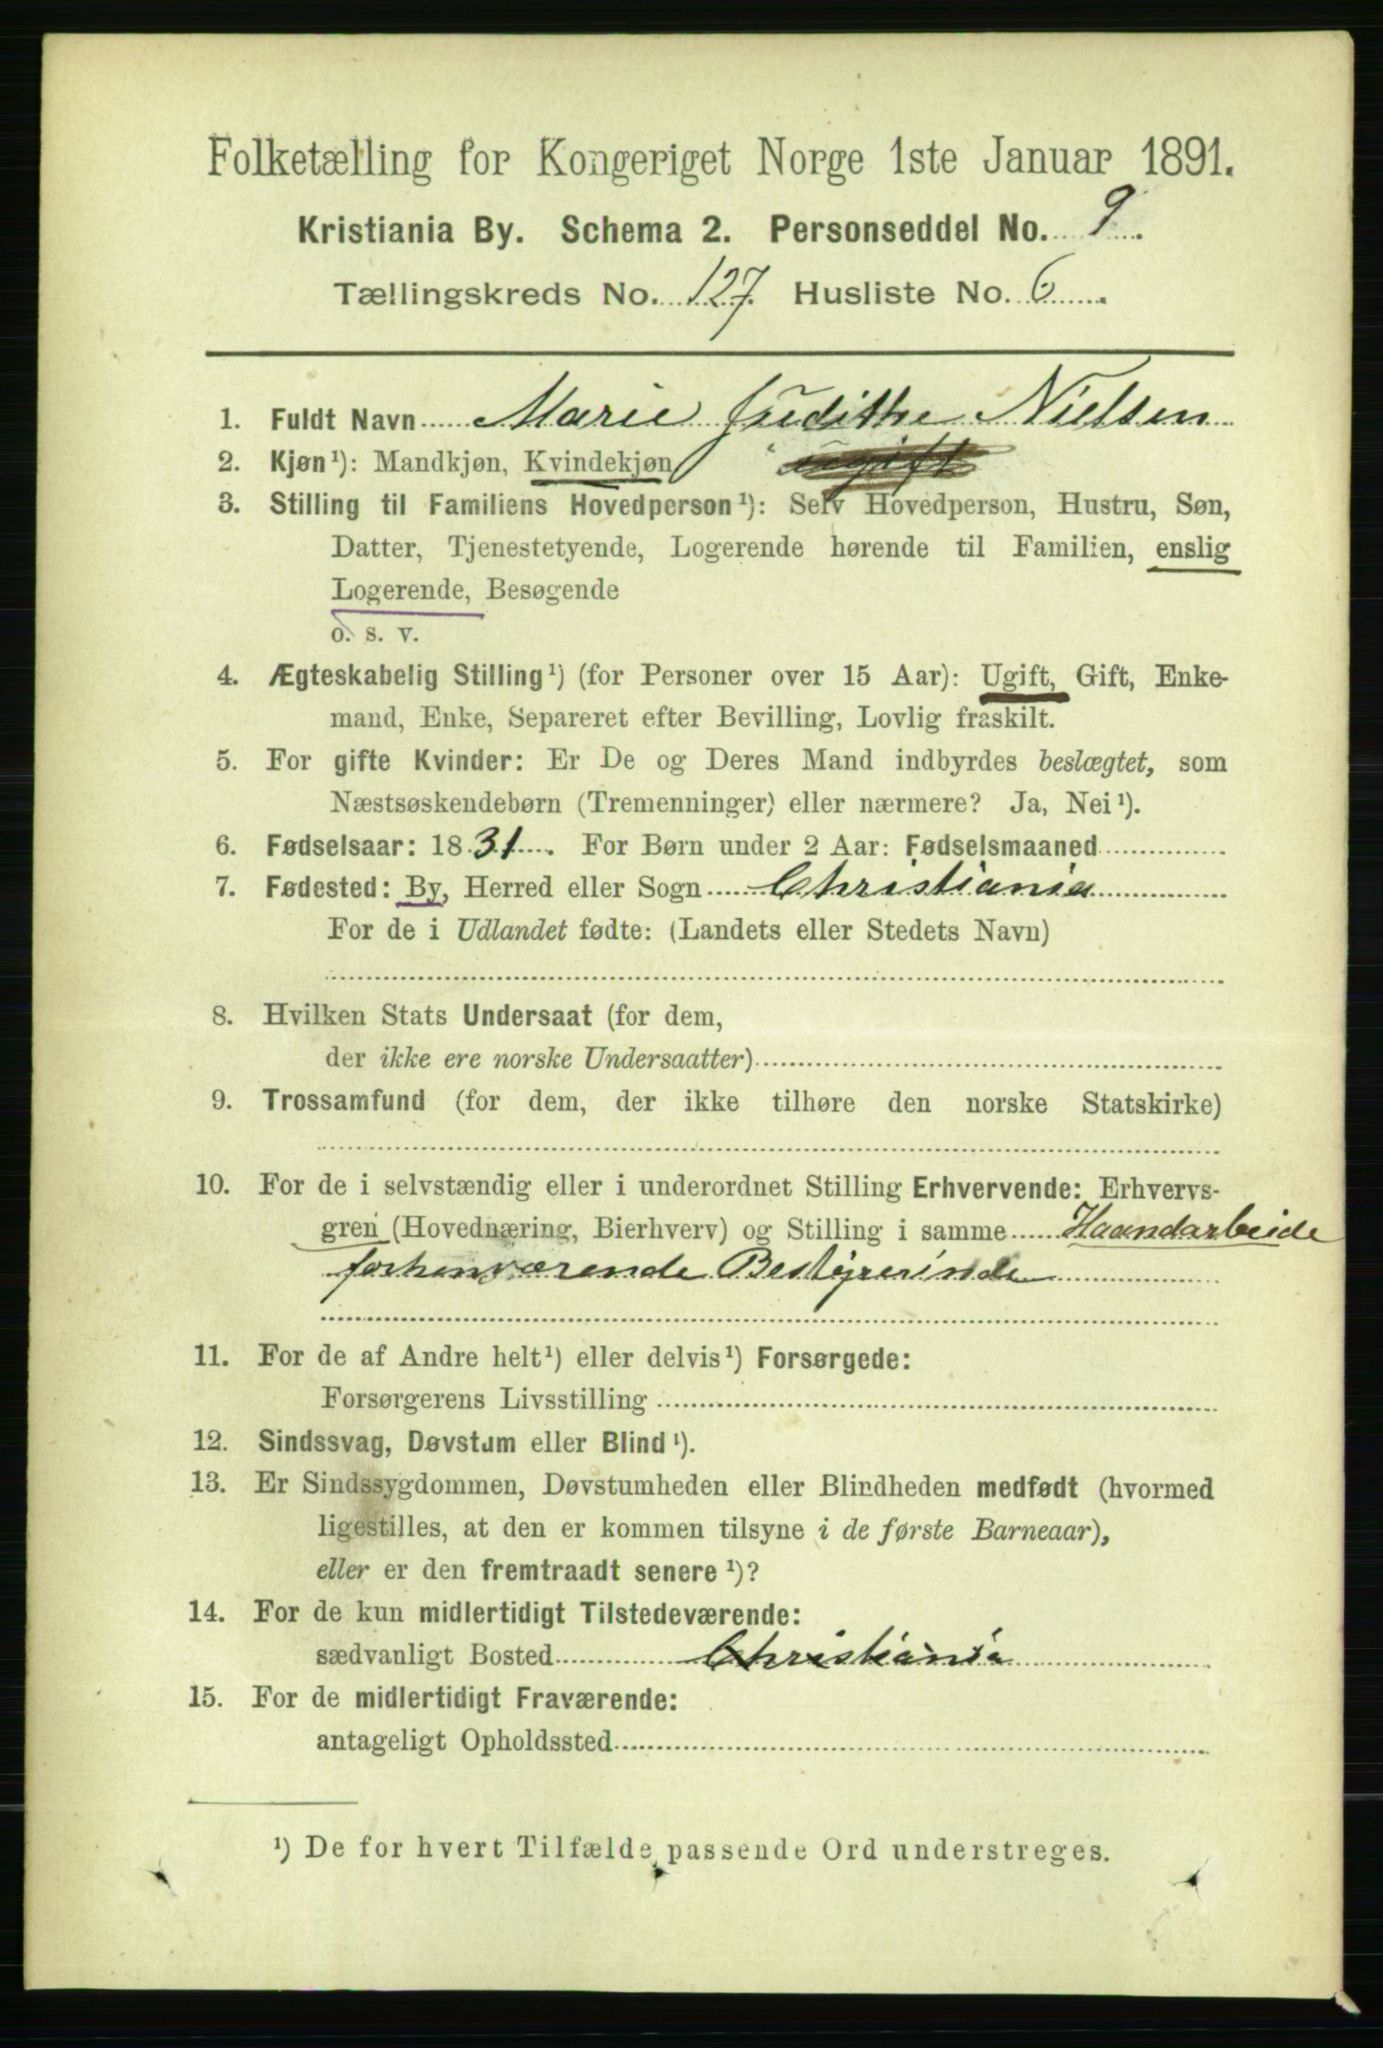 Folketælling for Kongeriget Norge 1ste Januar 1891.
Kristiania By. Schema 2. Personseddel No. 9.
Tællingskreds No. 127. Husliste No. 6.
1. Fuldt Navn Marie Judithe Nielsen
2. Kjøn¹): Mandkjøn, Kvindekjøn ugift
3. Stilling til Familiens Hovedperson¹): Selv Hovedperson, Hustru, Søn,
Datter, Tjenestetyende, Logerende hørende til Familien, enslig
Logerende, Besøgende
o. s. v.
4. Ægteskabelig Stilling¹) (for Personer over 15 Aar): Ugift, Gift, Enke-
mand, Enke, Separeret efter Bevilling, Lovlig fraskilt.
5. For gifte Kvinder: Er De og Deres Mand indbyrdes beslægtet, som
Næstsøskendebørn (Tremenninger) eller nærmere? Ja, Nei¹).
6. Fødselsaar: 1831. For Børn under 2 Aar: Fødselsmaaned
7. Fødested: By, Herred eller Sogn Christiania
For de i Udlandet fødte: (Landets eller Stedets Navn)
8. Hvilken Stats Undersaat (for dem,
der ikke ere norske Undersaatter)
9. Trossamfund (for dem, der ikke tilhøre den norske Statskirke)
10. For de i selvstændig eller i underordnet Stilling Erhvervende: Erhvervs-
gren (Hovednæring, Bierhverv) og Stilling i samme Haandarbeide
forhenværende Bestyrerinde
11. For de af Andre helt¹) eller delvis¹) Forsørgede:
Forsørgerens Livsstilling
12. Sindssvag, Døvstum eller Blind¹).
13. Er Sindssygdommen, Døvstumheden eller Blindheden medfødt (hvormed
ligestilles, at den er kommen tilsyne i de første Barneaar),
eller er den fremtraadt senere¹)?
14. For de kun midlertidigt Tilstedeværende:
sædvanligt Bosted Christiania
15. For de midlertidigt Fraværende:
antageligt Opholdssted
¹) De for hvert Tilfælde passende Ord understreges.